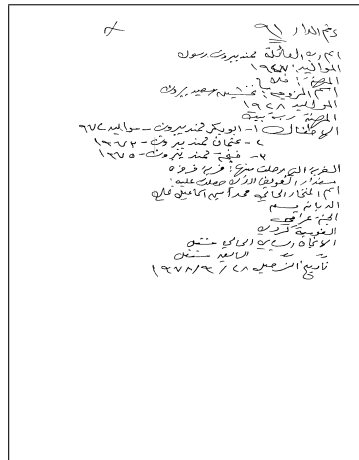 رقم الدار ٩١
اسم رب العائلة حمد بيروت رسول
المواليد: ١٩٤٧
المهنة: فلاح
اسم الزوجة: سعيد بيروت
المواليد ١٩٢٨
المهنة ربة بيت
الاطفال ١- ابوبكر حمد بيروت - مواليد ٩٧٢
٢- عثمان حمد بيروت - ١٩٧٣
٣- حمد بيروت - ١٩٧٥
القرية التي رحلت منها: قرية
مقدار التعويض الذي حصلت عليه:
اسم المختار الحالي محمد امين اسماعيل
الديانة مسلم
الجنسية عراقي
القومية كردي
الاتجاه السياسي الحالي مستقل
= = السابق مستقل
تاريخ الترحيل ٢٨/٩/١٩٧٨